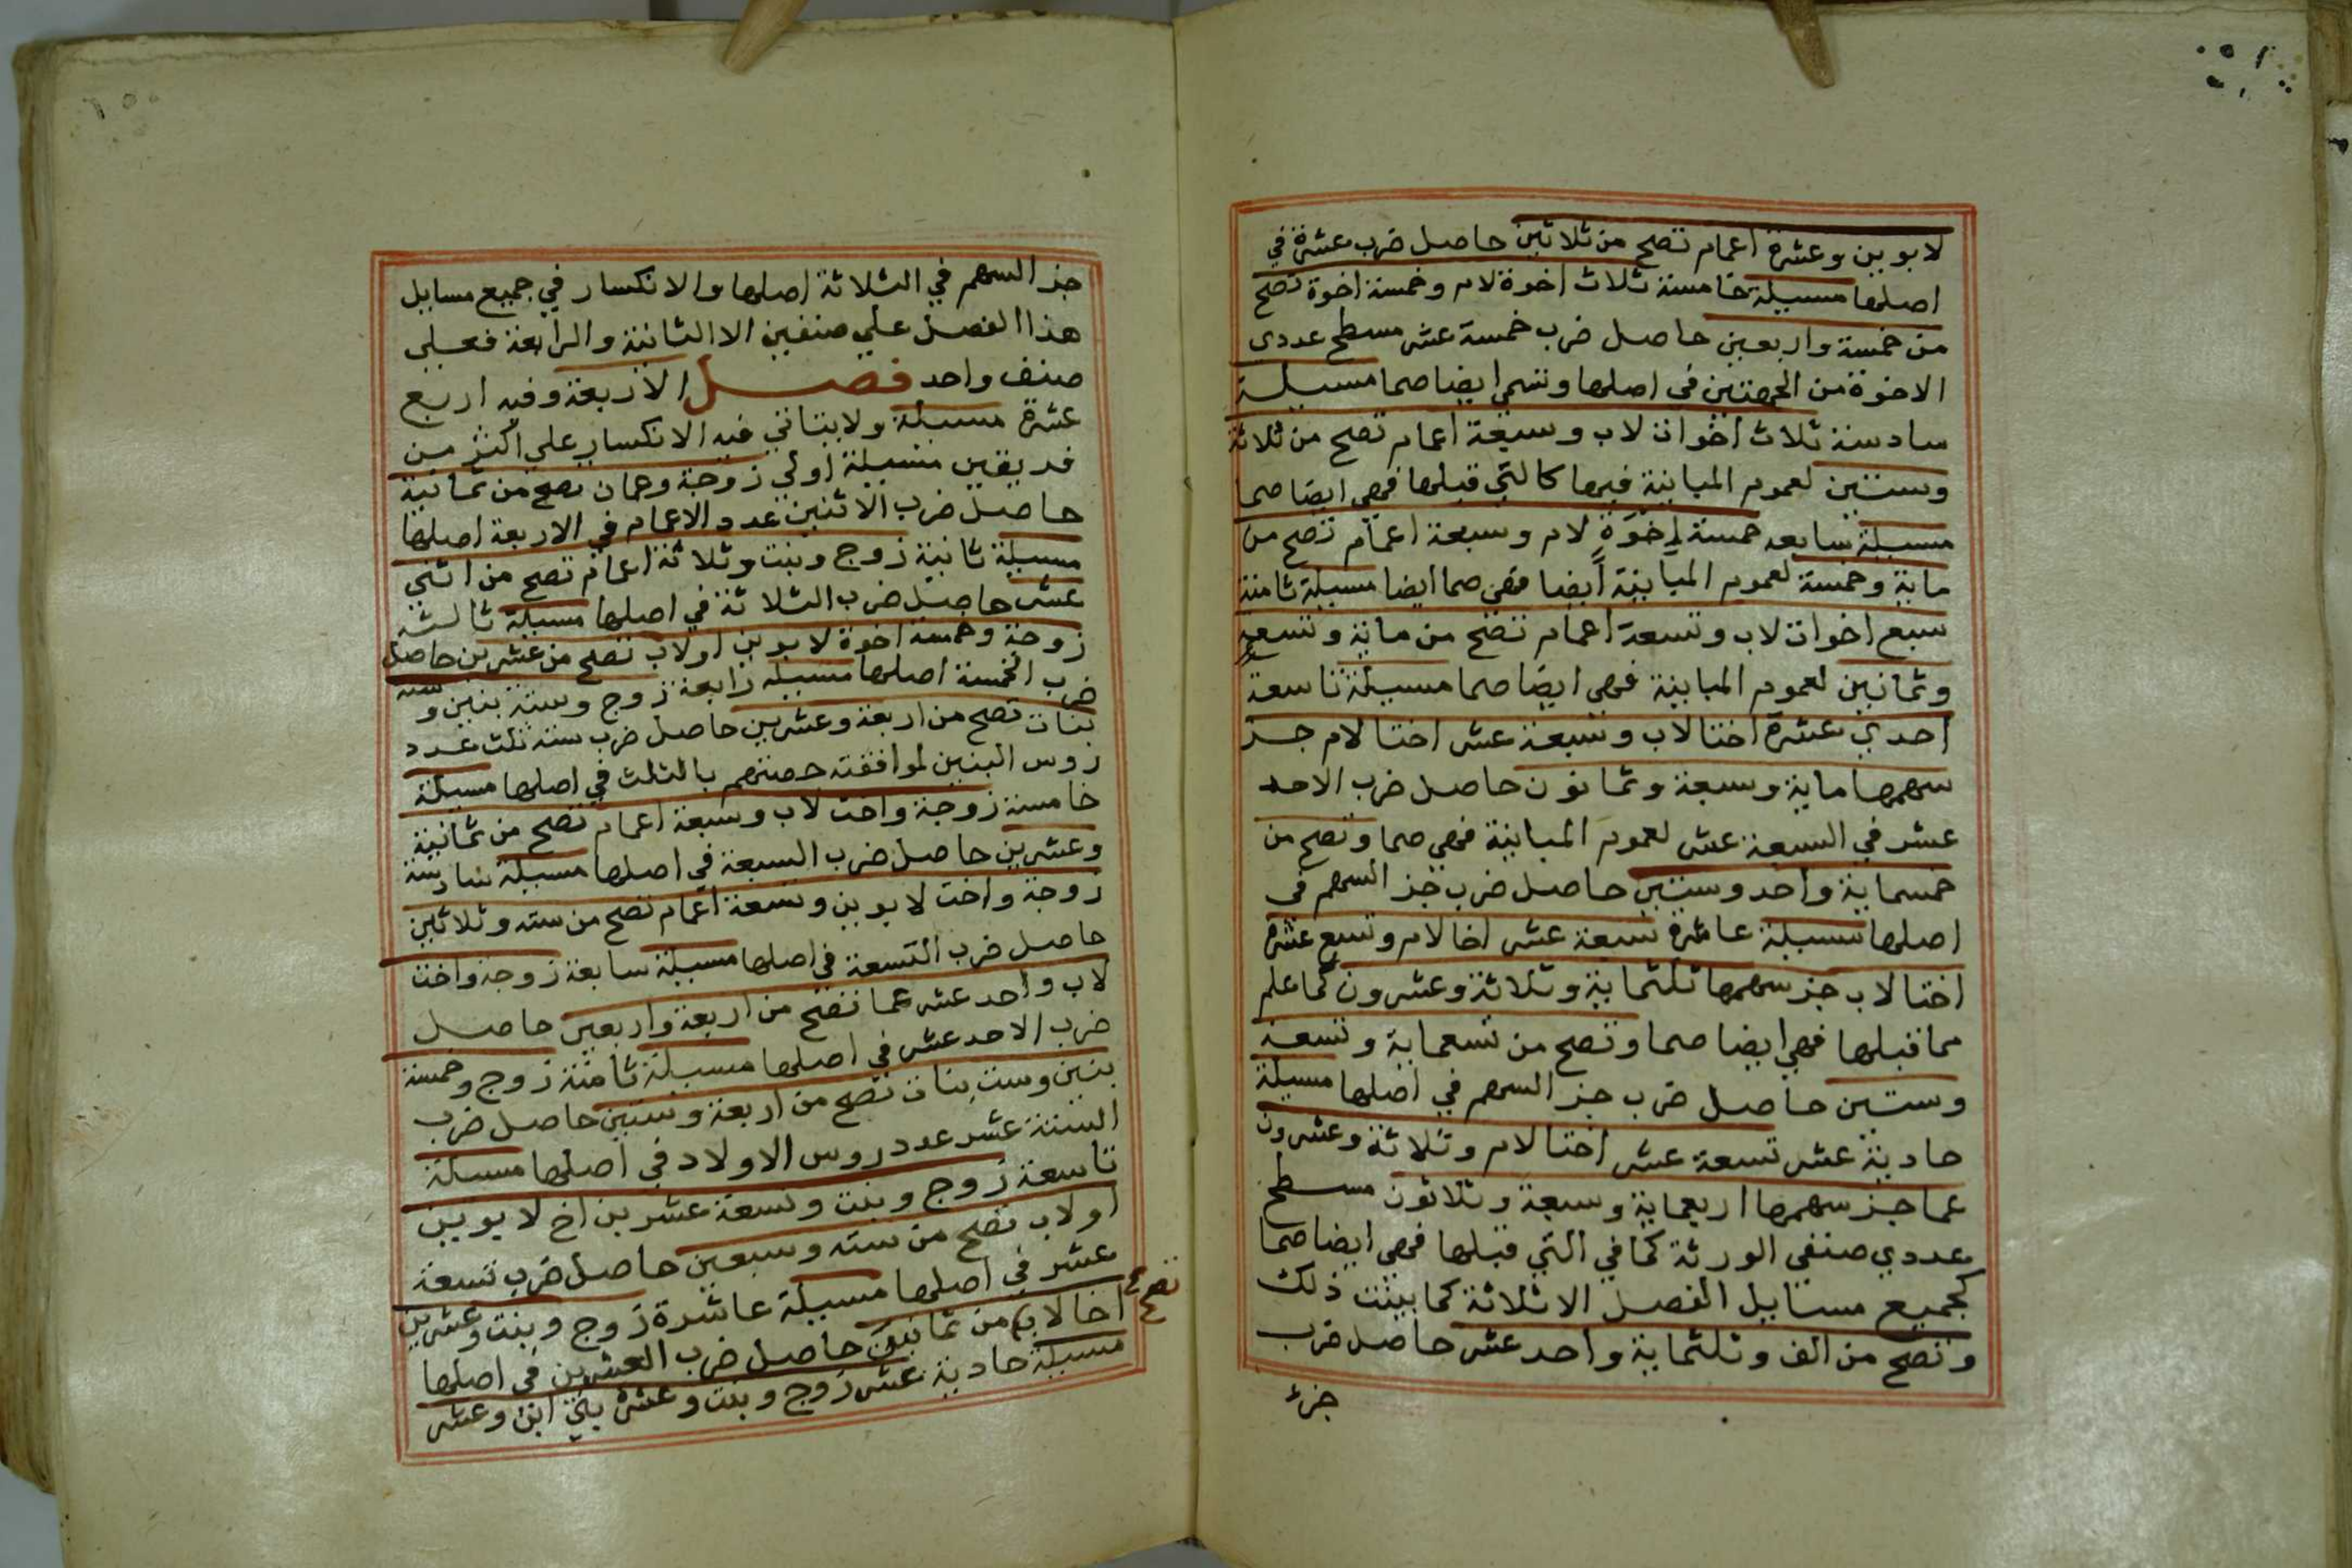 لابوين وعشرة اعمام تصح من ثلاثين حاصل ضرب عشرة في
اصلها مسيلة خامسة ثلاث اخوة لام وخمسة اخوة تصح
من خمسة واربعين حاصل ضرب خمسة عشر مسطح عددى
الاخوة من الجهتين في اصلها وتسمي ايضا صما مسيلة
سادسة ثلاث اخوات لاب وسبعة اعمام تصح من ثلاثة
وستين لعموم المباينة فيها كالتي قبلها فهي ايضا صما
مسيلة سابعه خمسة اِخْوَةٍ لام وسبعة اعمام تصح من
ماية وخمسة لعموم المباينة أيضا فهي صما ايضا مسيلة ثامنة
سبع اخوات لاب وتسعة اعمام تصح من ماية وتسعة
وثمانين لعموم المباينة فهي ايضا صما مسيلة تاسعة
احدي عشرة اختا لاب وسبعة عشر اختا لام جز
سهمها ماية وسبعة وثمانون حاصل ضرب الاحد
عشر في السبعة عشر لعموم المباينة فهي صما وتصح من
خمسماية واحد وستين حاصل ضرب جز السهم في
اصلها مسيلة عاشرة تسعة عشر اخا لام وتسع عشرة
اختا لاب جز سهمها ثلثماية وثلاثة وعشرون كما علم
مما قبلها فهي ايضا صما وتصح من تسعماية وتسعة
وستين حاصل ضرب جز السهم في اصلها مسيلة
حادية عشر تسعة عشر اختا لام وثلاثة وعشرون
عما جز سهمها اربعماية وسبعة وثلاثون مسطح
عددي صنفى الورثة كما في التي قبلها فهي ايضا صما
كجميع مسايل الفصل الا ثلاثة كما بينت ذلك
وتصح من الف وثلثماية واحد عشر حاصل ضرب
جزء
جز السهم في الثلاثة اصلها والانكسار في جميع مسايل
هذا الفصل علي صنفين الا الثانية والرابعة فعلي
صنف واحد فصل الاربعة وفيه اربع
عشرة مسيلة ولا يتاتي فيه الانكسار علي اكثر من
فريقين مسيلة اولي زوجة وعمان تصح من ثمانية
حاصل ضرب الاثنين عدد الاعمام في الاربعة اصلها
مسيلة ثانية زوج وبنت وثلاثة اعمام تصح من اثني
عشر حاصل ضرب الثلاثة في اصلها مسيلة ثالثه
زوجة وخمسة اخوة لابوين اولاب تصح من عشرين حاصل
ضرب الخمسة اصلها مسيلة رابعة زوج وستة بنين وسته
بنات تصح من اربعة وعشرين حاصل ضرب ستة ثلث عدد
روس البنين لموافقته حصتهم بالثلث في اصلها مسيلة
خامسة زوجة واخت لاب وسبعة اعمام تصح من ثمانية
وعشرين حاصل ضرب السبعة في اصلها مسيلة سادسة
زوجة واخت لابوين وتسعة اعمام تصح من سته وثلاثين
حاصل ضرب التسعة في اصلها مسيلة سابعة زوجة واخت
لاب واحد عشر عما تصح من اربعة واربعين حاصل
ضرب الاحد عشر في اصلها مسيلة ثامنة زوج وخمسة
بنين وست بنات تصح من اربعة وستين حاصل ضرب
الستة عشر عدد روس الاولاد في اصلها مسيلة
تاسعة زوج وبنت وتسعة عشر بن اخ لابوين
اولاب تصح من سته وسبعين حاصل ضرب تسعة
عشر في اصلها مسيلة عاشرة زوج وبنت وعشرين
اخا لاب من ثمانين حاصل ضرب العشرين في اصلها
تصح
مسيلة حادية عشر زوج وبنت وعشرة بني ابن وعشر